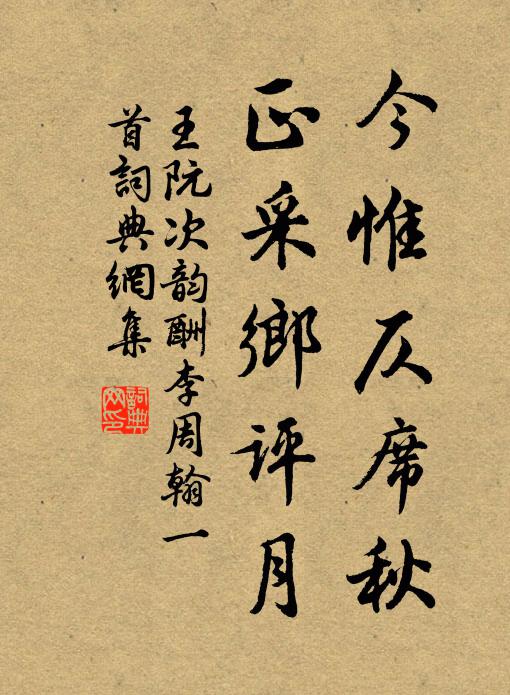 今惟仄席秋
正采鄉評月
王阮次韵酬李周翰一
首詞典網集
詞典网印